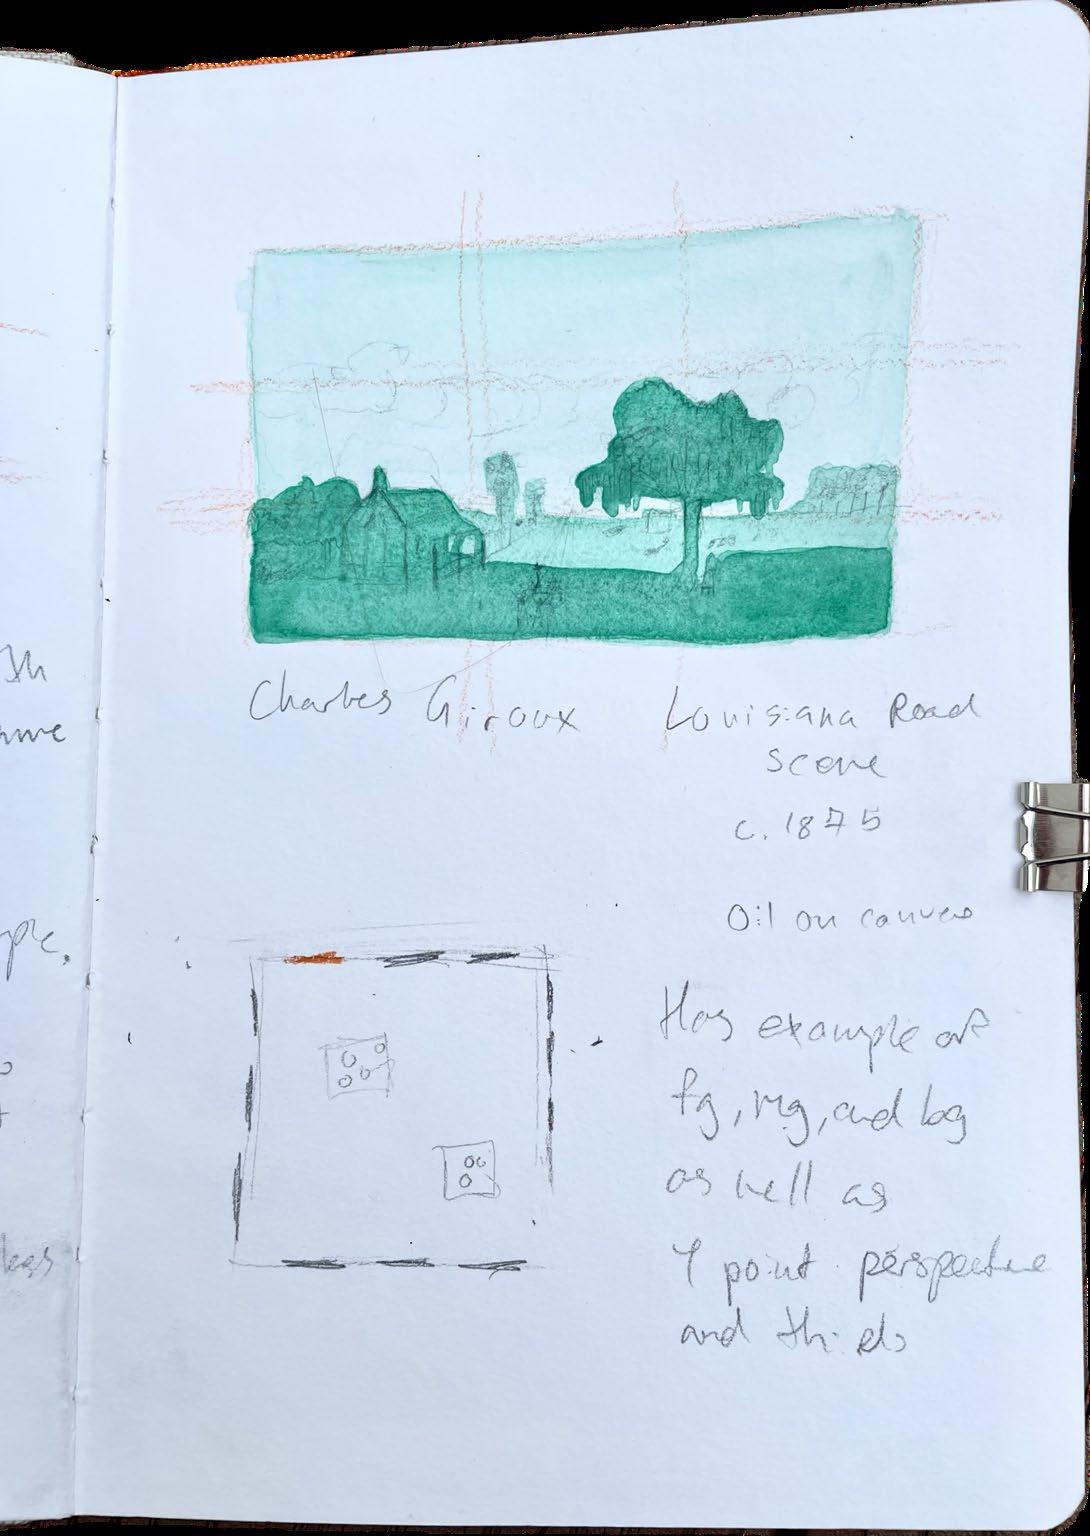 Charles Giroux
Louisiana Road
scene
c. 1875
Oil on canvas
Has example of
fg, mg, and bg
as well as
1 point perspective
and thirds
ple.